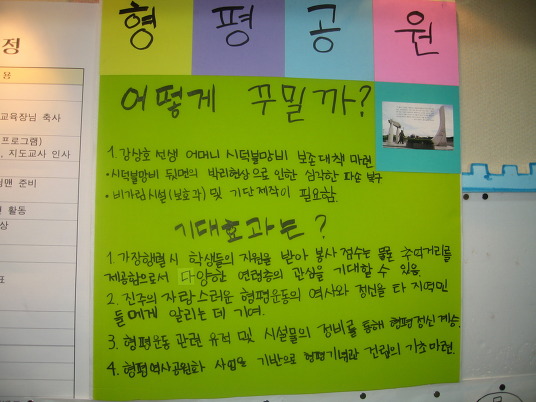 형평공원
어떻게 꾸밀까?
1. 강상호 선생 어머니 시덕불망비 보존대책 마련
•시덕불망비 뒷면의 박리현상으로 인한 심각한 파손 복구
•비가림시설(보호각) 및 기단제작이 필요함.
기대효과는?
1. 가장행렬시 학생들의 지원을 받아 봉사 점수는 물론 추억거리를
제공함으로서 다양한 연령층의 관심을 기대할 수 있음.
2. 진주의 자랑스러운 형평운동의 역사와 정신을 타 지역민
들에게 알리는 데 기여.
3. 형평운동 관련 유적 및 시설물의 정비를 통해 형평정신 계승.
4. 형평역사공원화 사업을 기반으로 형평기념관 건립의 기초마련.
정
용
교육장님 축사
프로그램)
, 지도교사 인사
맨 준비
활동
상
표